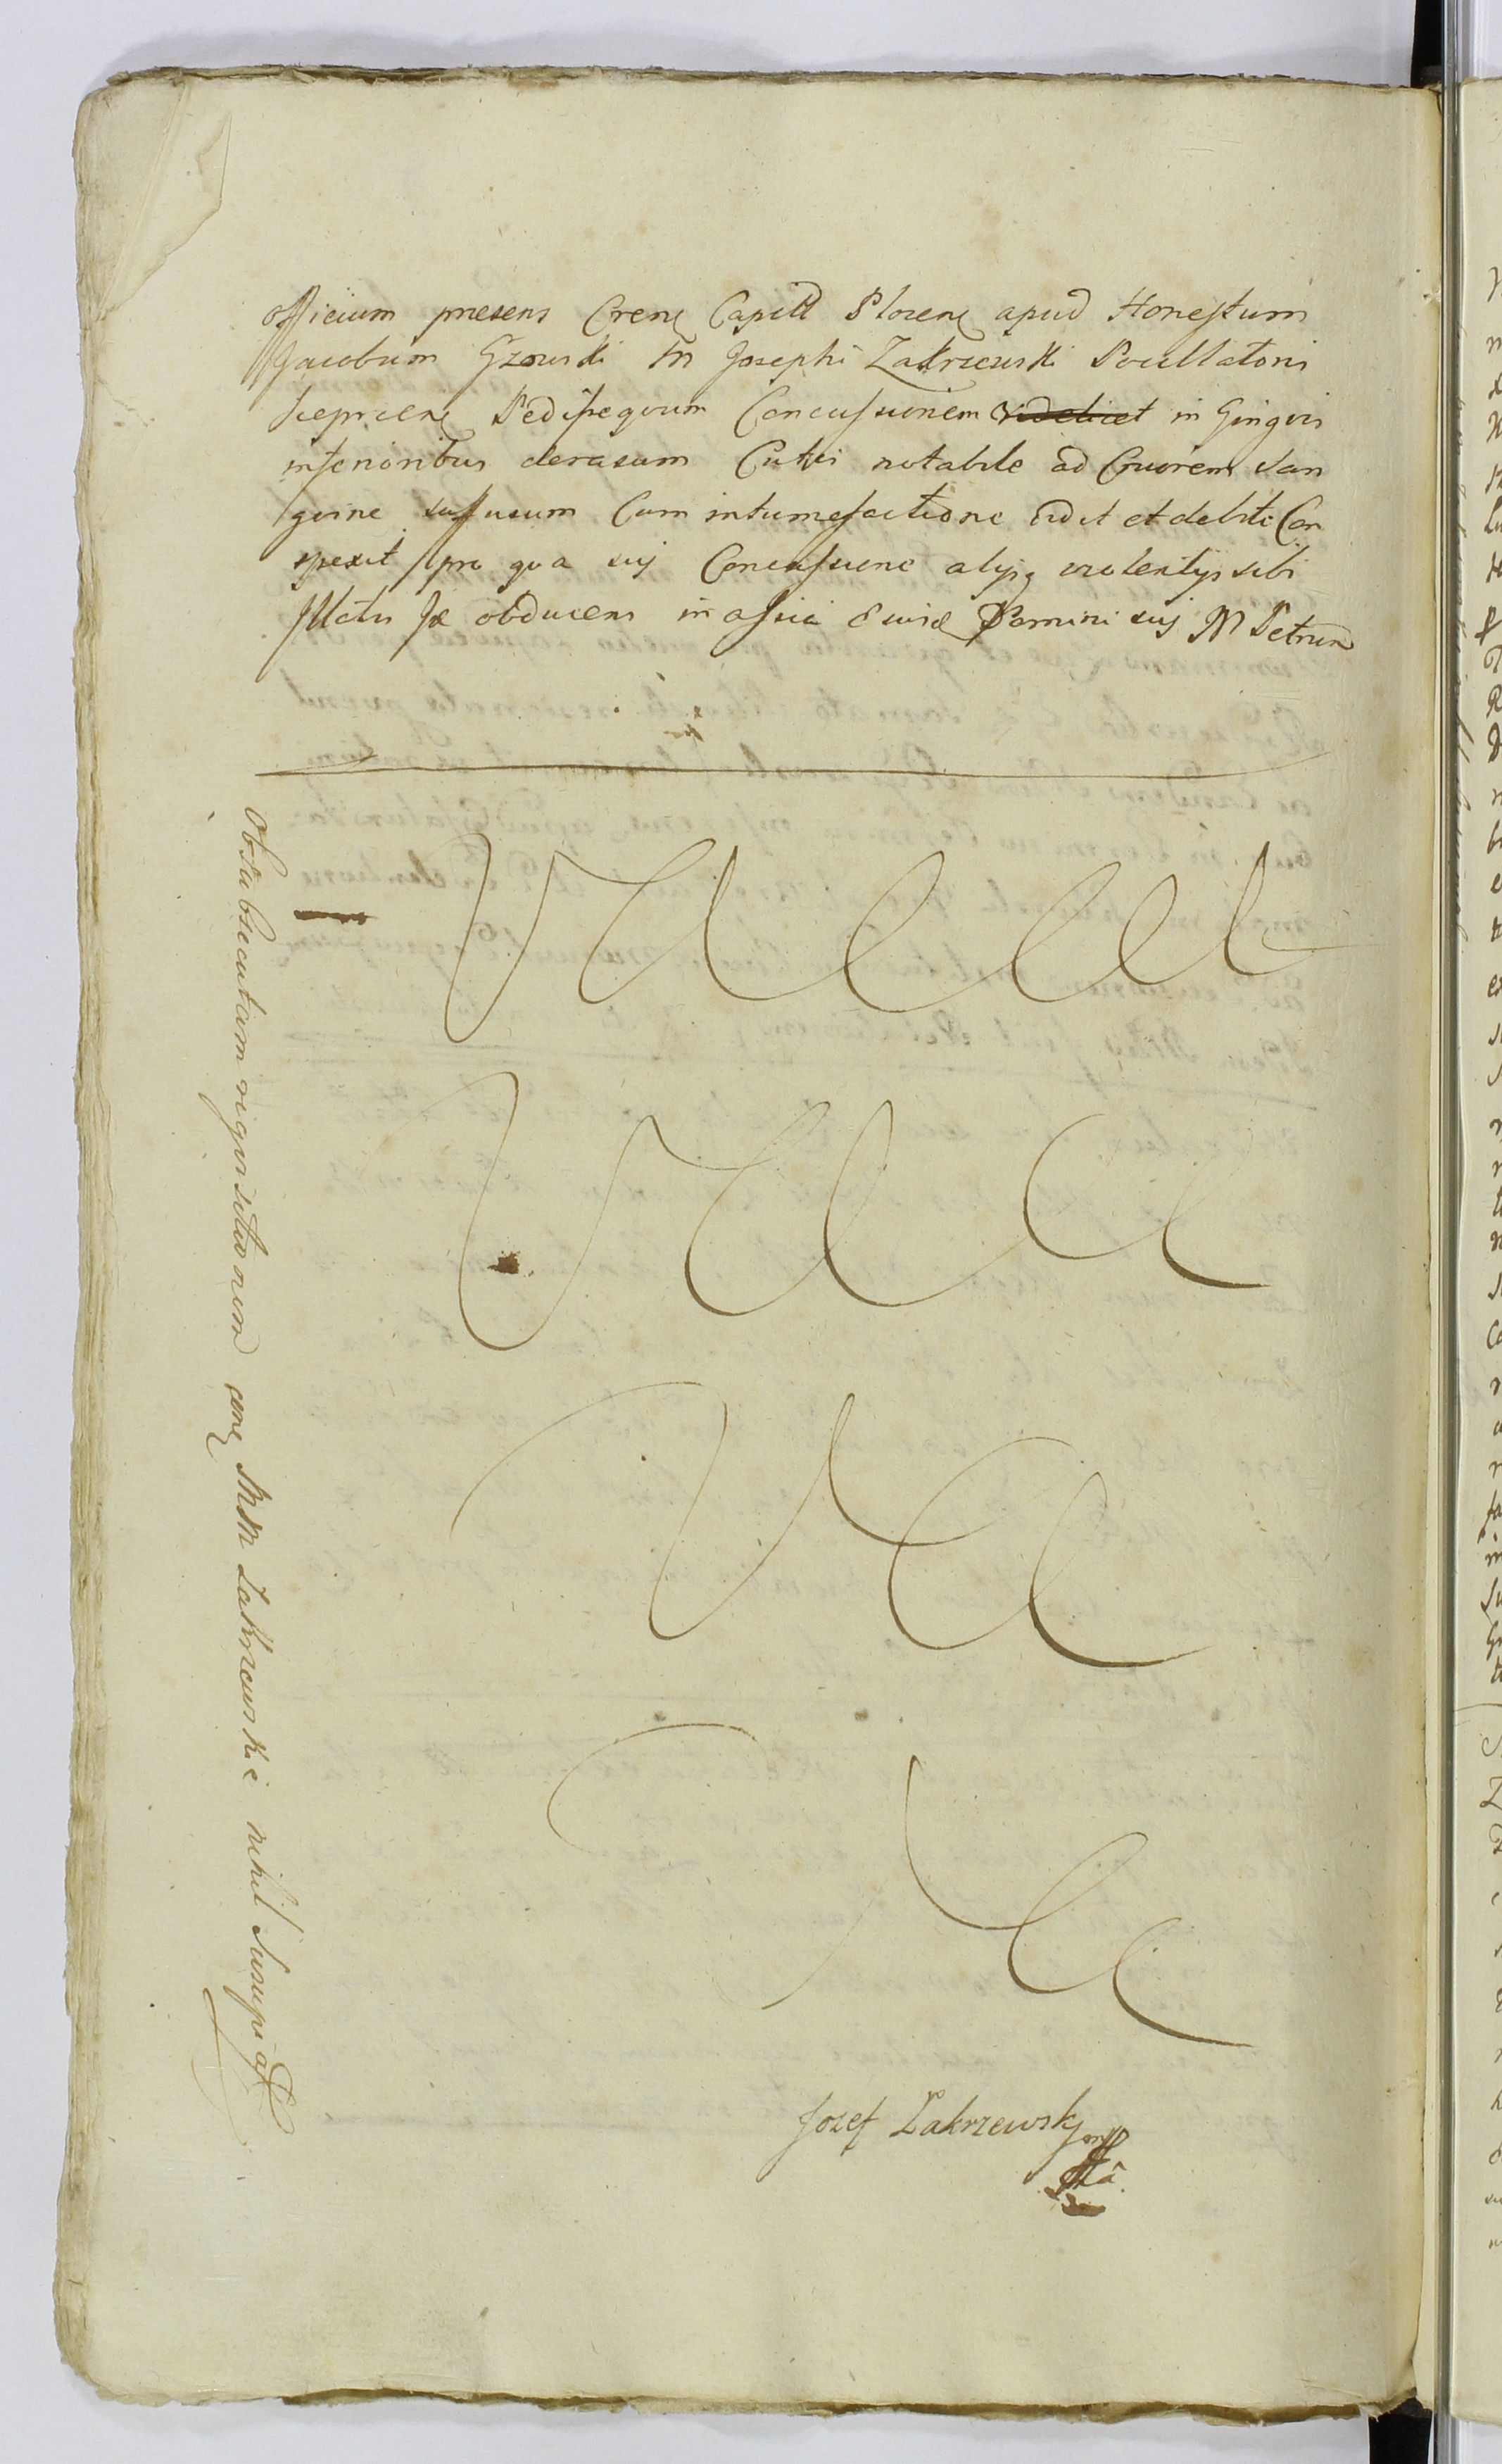 Officium presens Crense Capitt Plocense apud Honestum
Jacobum Gzowski M Josephi Zakrzewski
Pedissequum Concussionem videlicet in Gingvis
inferioribus derasum Cutis notabile ad Cruorem San
gvine suffusum Cum intumefactione vidit et debite Con
spexit pro qva sui Concussione alijsq violentijs sibi
Illatis se obducens in assia Ejusd Domini sui M Petrum
Obsta bsecutam reqvisitionem MM Zakrzewski nihil Suscepi
Jozef Zakrzewsky